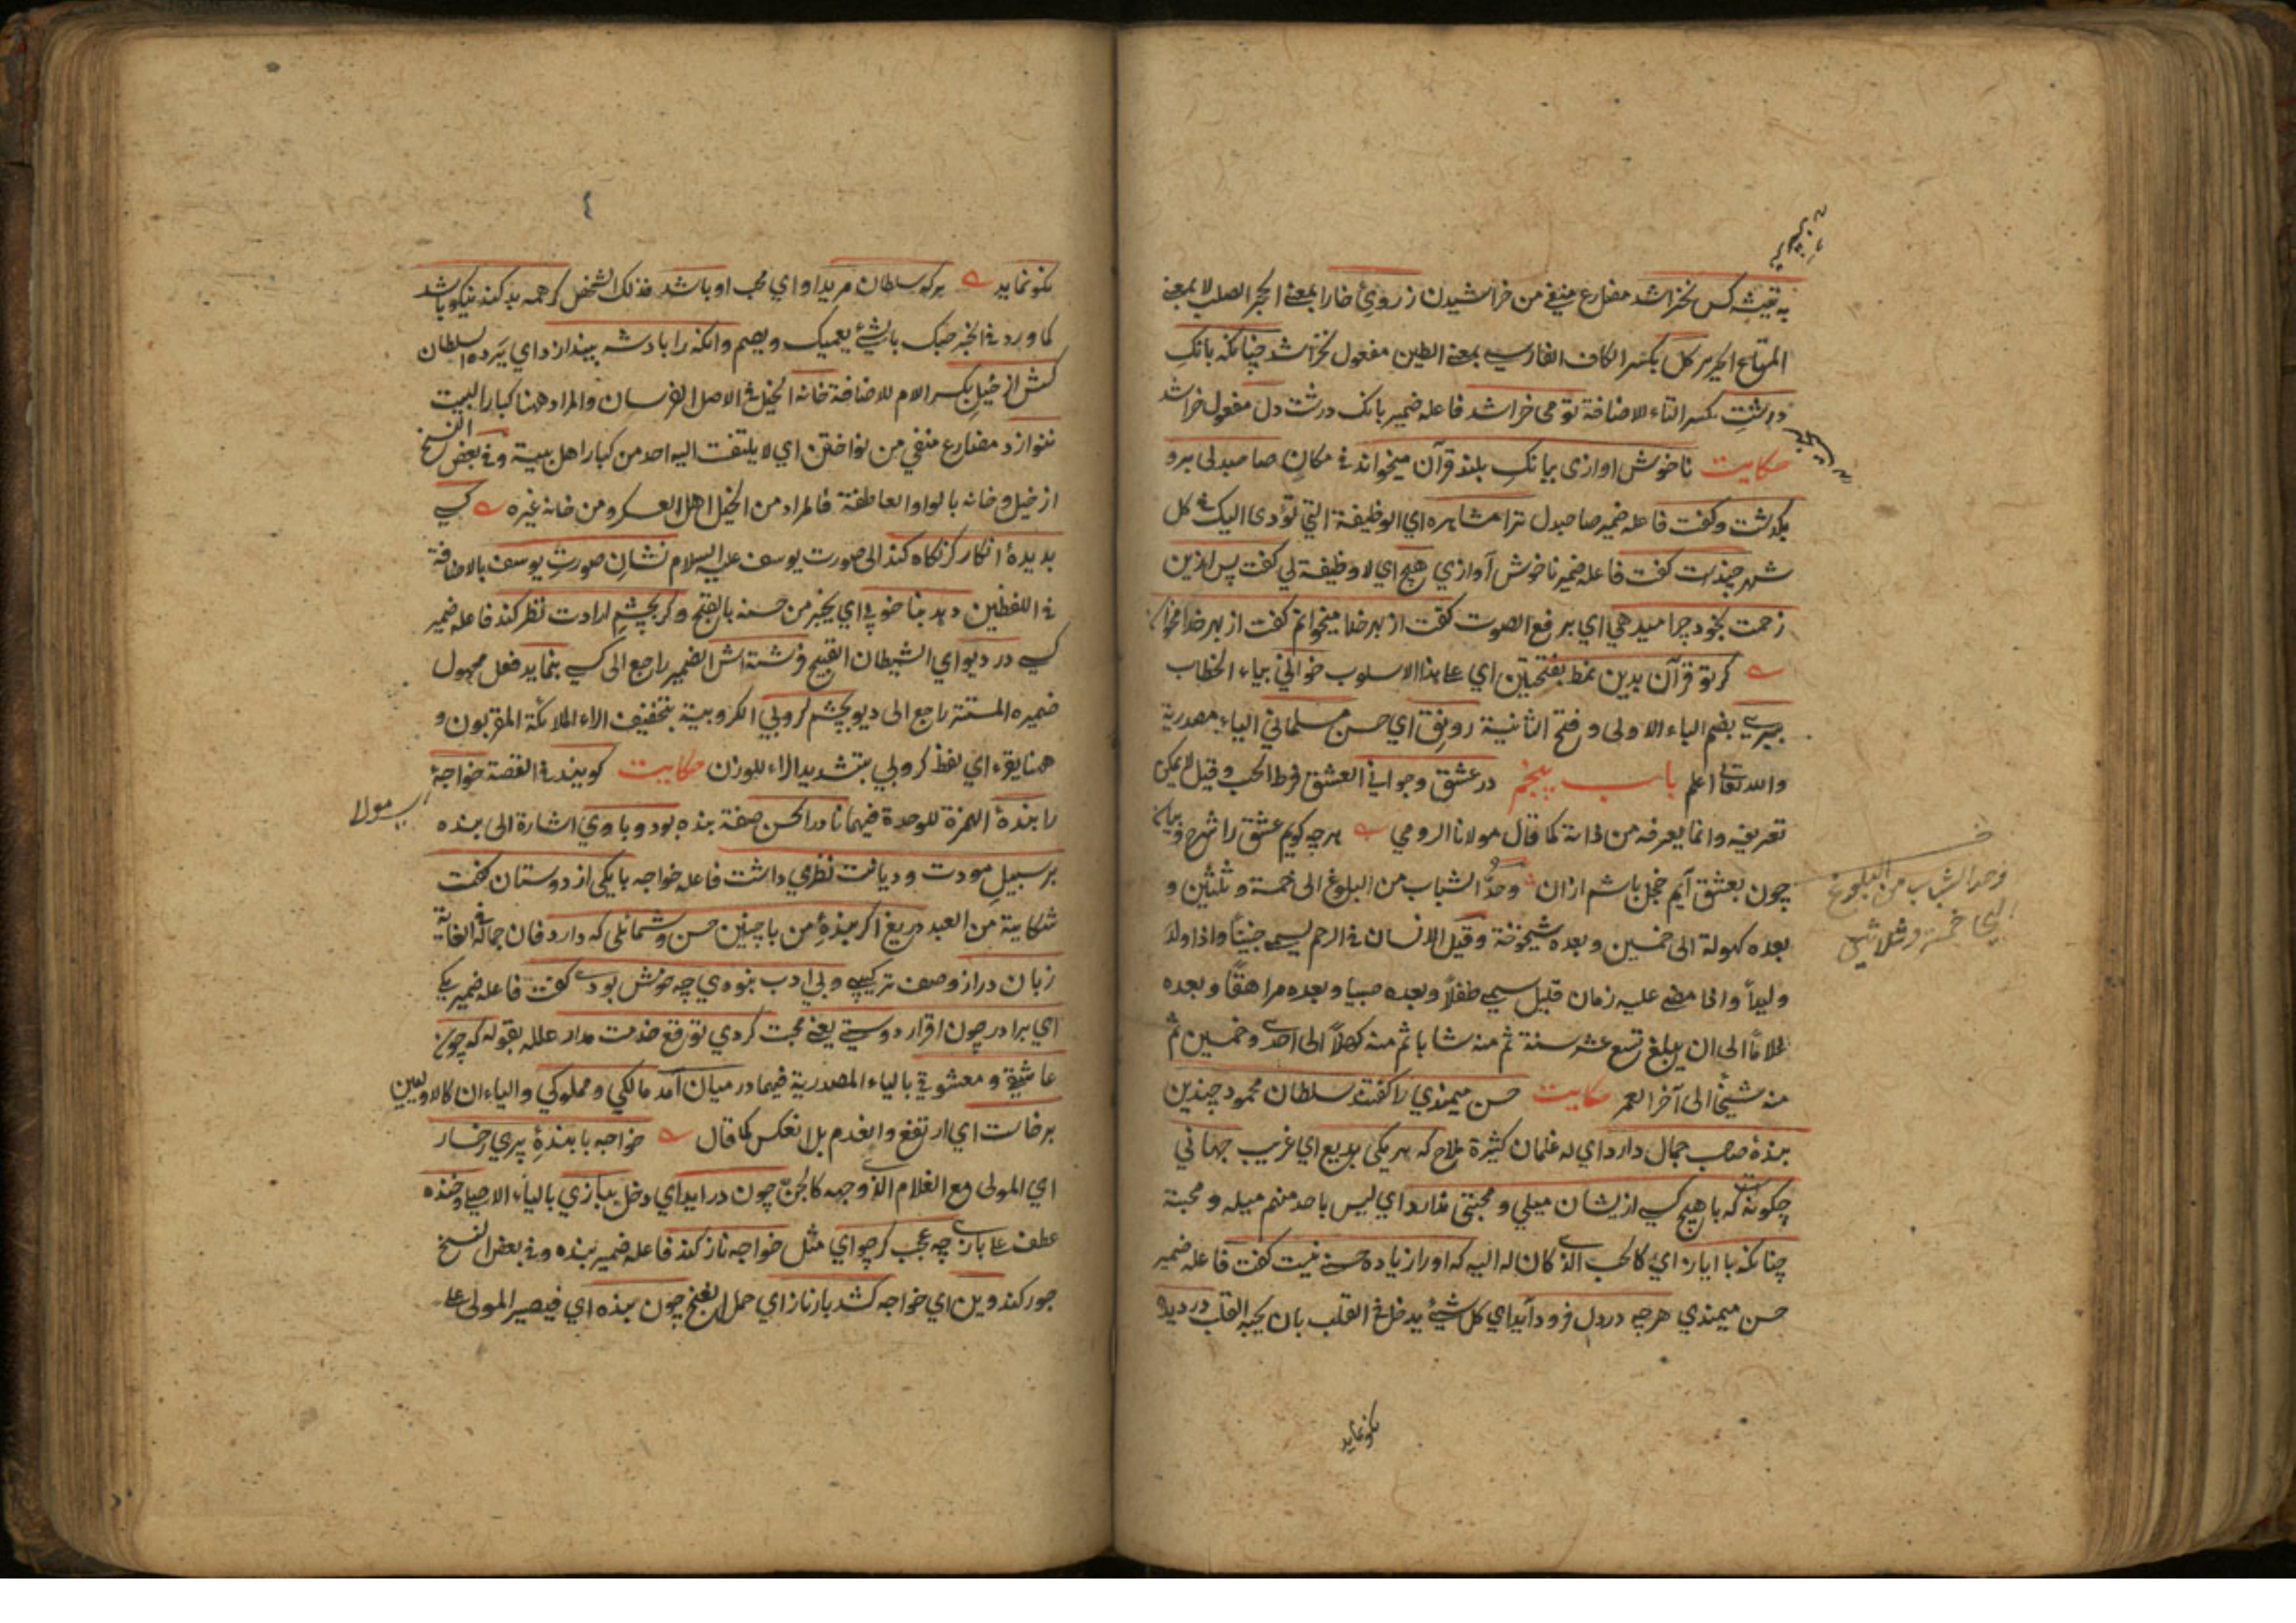 به تیشه کس نخراشد مضارع منفی من خراشیدن ز روی خارا بمعنی الحجر الصلب لا بمعنی
المتاع الحریر کل بکسر الکاف الفارسی بمعنی الطین مفعول نخراشد چنانکه بانک
درشت بکسر التاء للاضافة تو می خراشد فاعله ضمیر بانک درشت دل مفعول خراشد
حکایت ناخوش اوازی ببانک بلند قرآن میخواند فی مکان صاحبدلی برو
بکذشت وکفت فاعله ضمیر صاحبدل ترا مشاهره ای الوظیفة التی تؤدی الیک فی کل
شهر چندست کفت فاعله ضمیر ناخوش آوازی هیچ ای لا وظیفة لی کفت پس این
زحمت بخود چرا میدهی ای برفع الصوت کفت از بهر خدا میخوانم کفت از بهر خدا مخوان
کر تو قرآن بدین نمط بفتحتین ای علی هذا الاسلوب خوانی بیاء الخطاب
ببری بضم الباء الاولی وفتح الثانیة رونق ای حسن مسلمانی الیاء مصدریة
والله تعالی اعلم باب پنجم در عشق وجوانی العشق فرط الحب وقیل لا یمکن
تعریفه وانما یعرفه من ذاته کما قال مولانا الرومی هرچه کویم عشق را شرح وبیان
چون بعشق آیم خجل باشم ازان وحدّ الشباب من البلوغ الی خمسة وثلثین و
بعده کهولة الی خمسین وبعده شیخوخة وقیل الانسان فی الرحم یسمی جنیناً واذا ولد
ولیداً واذا مضی علیه زمان قلیل یسمی طفلاً وبعده صبیا وبعده مراهقاً وبعده
غلاماً الی ان یبلغ تسع عشر سنة ثم منه شابا ثم منه کهلاً الی احدی وخمسین ثم
منه شیخاً الی آخر العمر حکایت حسن میمندی را کفتند سلطان محمود چندین
بندۀ صاحب جمال دارد ای له غلمان کثیرة ملاح که هر یکی بدیع ای غریب جهانی
چکونه که با هیچ کسی از یشان میلی ومحبتی ندارد ای لیس باحد منهم میله ومحبته
چنانکه با ایاز ای کالحب الذی کان له الیه که اورا زیاده حسنی نیست کفت فاعله ضمیر
حسن میمندی هرچه در دل فرود آید ای کل شیء یدخل فی القلب بان یحبه القلب در دیده
وحد الشباب من البلوغ
الی خمسة وثلاثین
نکو نماید
نکو نماید هرکه سلطان مرید او ای محب او باشد فذلک الشخص کر همه بد کند نیکو باشد
کما ورد فی الخبر حبک بالشیء یعمیک ویصم وانکه را بادشه بیندازد ای یرده السلطان
کسش از خیل بکسر اللام للاضافة خانه الخیل فی الاصل الفرسان والمراد ههنا کبار البیت
ننوازد مضارع منفی من نواختن ای لا یلتفت الیه احد من کبار اهل بیته وفی بعض النسخ
از خیل وخانه بالواو العاطفة فالمراد من الخیل اهل العسکر ومن خانه غیره کسی
بدیدۀ انکار کر نکاه کند الی صورت یوسف علیه السلام نشان صورت یوسف بالاضافة
فی اللفظین دهد بناخوبی ای یخبر من حسنه بالقبح وکر بچشم ارادت نظر کند فاعله ضمیر
کسی در دیو ای الشیطان القبیح فرشته اش الضمیر راجع الی کسی بنماید فعل مجهول
ضمیره المستتر راجع الی دیو بچشم کروبی الکروبیة بتخفیف الراء الملائکة المقربون و
ههنا یقرء ای لفظ کروبی بتشدید الراء للوزن حکایت کویند فی القصة خواجۀ
را بندۀ الهمزة للوحدة فیهما نادر الحسن صفة بنده بود وباوی اشارة الی بنده
مولا
بر سبیل مودت ودیانت نظری داشت فاعله خواجه با یکی از دوستان کفت
شکایة من العبد دریغ اکر بندۀ من با چنین حسن وشمائلی که دارد فان جماله فی الغایة
زبان دراز وصف ترکیبی وبی ادب نبودی چه خوش بودی کفت فاعله ضمیر یکی
ای برادر چون اقرار دوستی یعنی محبت کردی توقع خدمت مدار علله بقوله که چون
عاشقی ومعشوقی بالیاء المصدریة فیهما در میان آمد مالکی ومملوکی والیاءان کالاولیین
برخاست ای ارتفع وانعدم بل انعکس کما قال خواجه با بندۀ پری رخسار
ای المولی مع الغلام الذی وجهه کالجن چون در اید ای دخل ببازی بالیاء الاصلی وخنده
عطف علی بازی چه عجب کر چو ای مثل خواجه ناز کند فاعله ضمیر بنده وفی بعض النسخ
جور کند وین ای خواجه کشد بار ناز ای حمل الغنج چون بنده ای فیصیر المولی علی